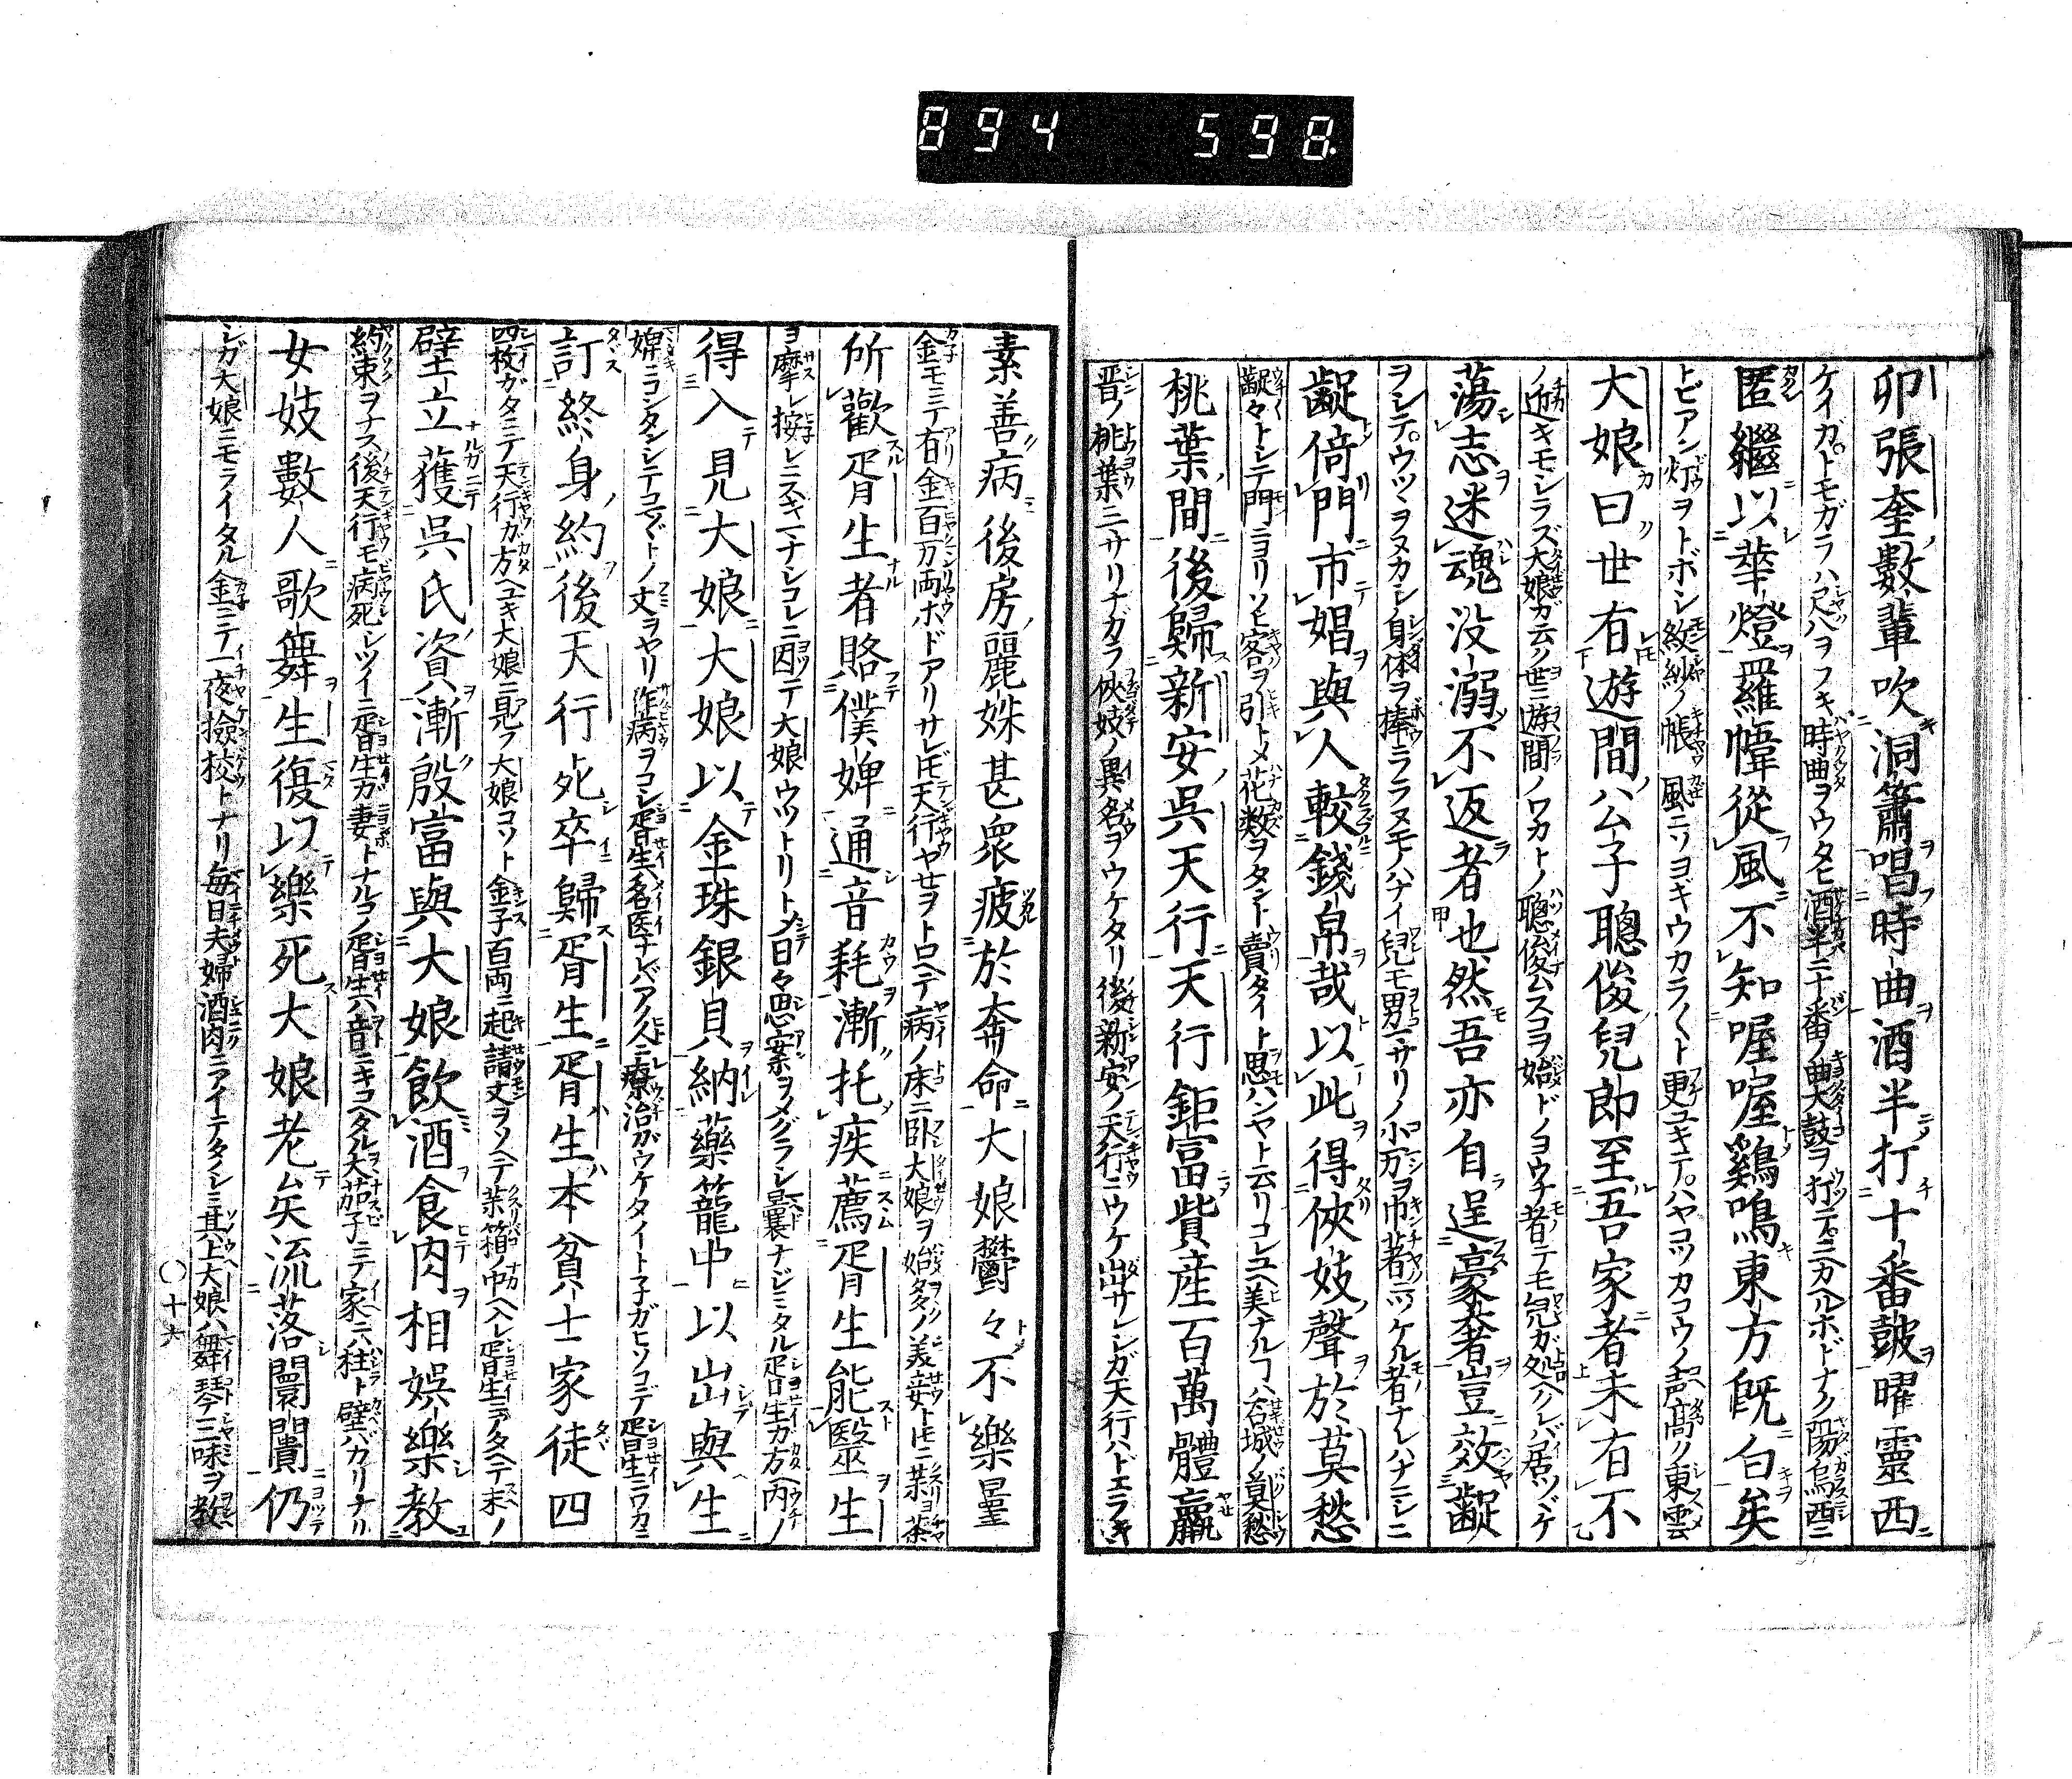 894 598
卯張奎數輩吹洞簫唱時曲酒半打十番皷曜靈西
ケイガ。トモガラハ尺八ヲフキ時曲ヲウタヒ酒半ニ十番ノ曲大鼓ヲ打ツ。ニカヘルホドナク陽烏西ニ
匿繼以華燈羅幃從風不知喔喔鷄鳴東方既白矣
トビアン灯ヲトボシ紋紗ノ帳風ニソヨギウカラ〱ト更ユキテ。ハヤコツカコウノ声高ク東雲
大娘曰世有遊間公子聰俊兒郎至吾家者未有不
ノ近キモシラズ大娘ガ云ク世ニ遊間ノワカトノ聰俊ムスコヲ始ドノヨウナ者ノテモ兒ガ処ヘクレバ居ツヾケ
蕩志迷魂沒溺不返者也然吾亦自逞豪奢豈效齪
ヲシテ。ウツヽヲヌカシノ身体ヲ棒ニフラヌモノハナイ兒モ男マサリノ小万ヲ巾著ニツケル者ナレハナニシニ
齪倚門市娼與人較錢帛哉以此得俠妓聲於莫愁
齪々トシテ門ニヨリソヒ客ヲ引トメ花数ヲタント賣タイト思ハンヤト云リコレユヘ美ナルヿハ石城ノ莫愁
桃葉間後歸新安吳天行天行鉅富貲産百萬體羸
晋ノ桃葉ニサリナガラ俠妓ノ異名ヲウケタリ後新安ノ天行ニウケ出サレシガ天行ハドエラキ
素善病後房麗姝甚衆疲於奔命大娘鬱々不樂曇
金モミテ有金百万両ホドアリサレ𪜈天行ヤセヲトロヘテ病ノ床ニ卧大娘ヲ始多ノ美妾ト𪜈ニ藥ヨ茶
所歡胥生者賂僕婢通音耗漸托疾薦胥生能醫生
ヲ摩レ按レニスキマナシコレニ因テ大娘ウツトリトシテ日々思案ヲメグラシ曩ナジミタル胥生カ方ヘ内ノ
得入見大娘大娘以金珠銀貝納藥籠中以出與生
婢ニコンタンシテコマ〲トノ文ヲヤリ作病ヲコレ胥生名医ナレバアノ人ニ療治ガウケタイト子ガヒソコデ胥生ニワカニ
訂終身約後天行死卒歸胥生胥生本貧士家徒四
四枚ガタニテ天行カ方ヘユキ大娘ニ見フ大娘コソト金子百両ニ起請文ヲソヘテ藥箱ノ中ヘ入レ胥生ニアタヘテ末ノ
壁立獲吳氏資漸殷富與大娘飮酒食肉相娯樂教
約束ヲナス後天行モ病死シツイニ胥生カ妻トナルコノ胥生ハ音ニキコヘタル大茄子ニテ家ニハ柱ト壁バカリナリ
女妓數人歌舞生復以樂死大娘老矣流落闤闠仍
シガ大娘ニモライタル金ニテ一夜撿挍トナリ每日夫婦酒肉ニアイテタノシミ其上大娘ハ舞琴三味ヲ教
〇十六